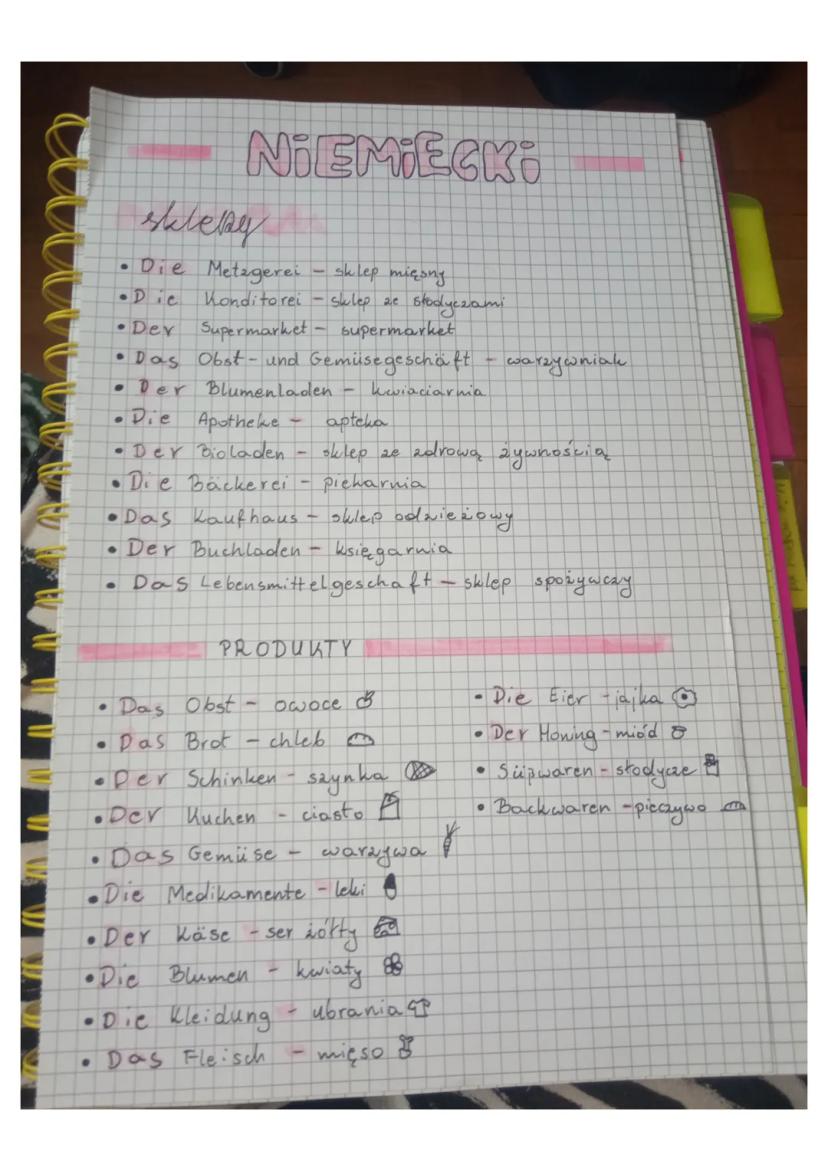 NIEMIECKI
sklepy
• Die Metzgerei - sklep mięsny
• Die Konditorei - sklep ze słodyczami
• Der Supermarket - supermarket
• Das Obst- und Gemüsegeschäft - warzywniak
• Der Blumenladen - kwiaciarnia
• Die Apotheke - apteka
• Der Bioladen - sklep ze zdrową żywnością
• Die Bäckerei - piekarnia
• Das Kaufhaus - sklep odzieżowy
• Der Buchladen - księgarnia
• Das Lebensmittelgeschaft - sklep spożywczy
PRODUKTY
• Das Obst - owoce
• Das Brot - chleb
• Der Schinken - szynka
• Der Kuchen - ciasto
• Das Gemüse - warzywa
• Die Medikamente - leki
• Der Käse - ser żółty
• Die Blumen - kwiaty
• Die Kleidung - ubrania
• Das Fleisch - mięso
• Die Eier - jajka
• Der Honing - miód
• Süpwaren - słodycze
• Backwaren - pieczywo